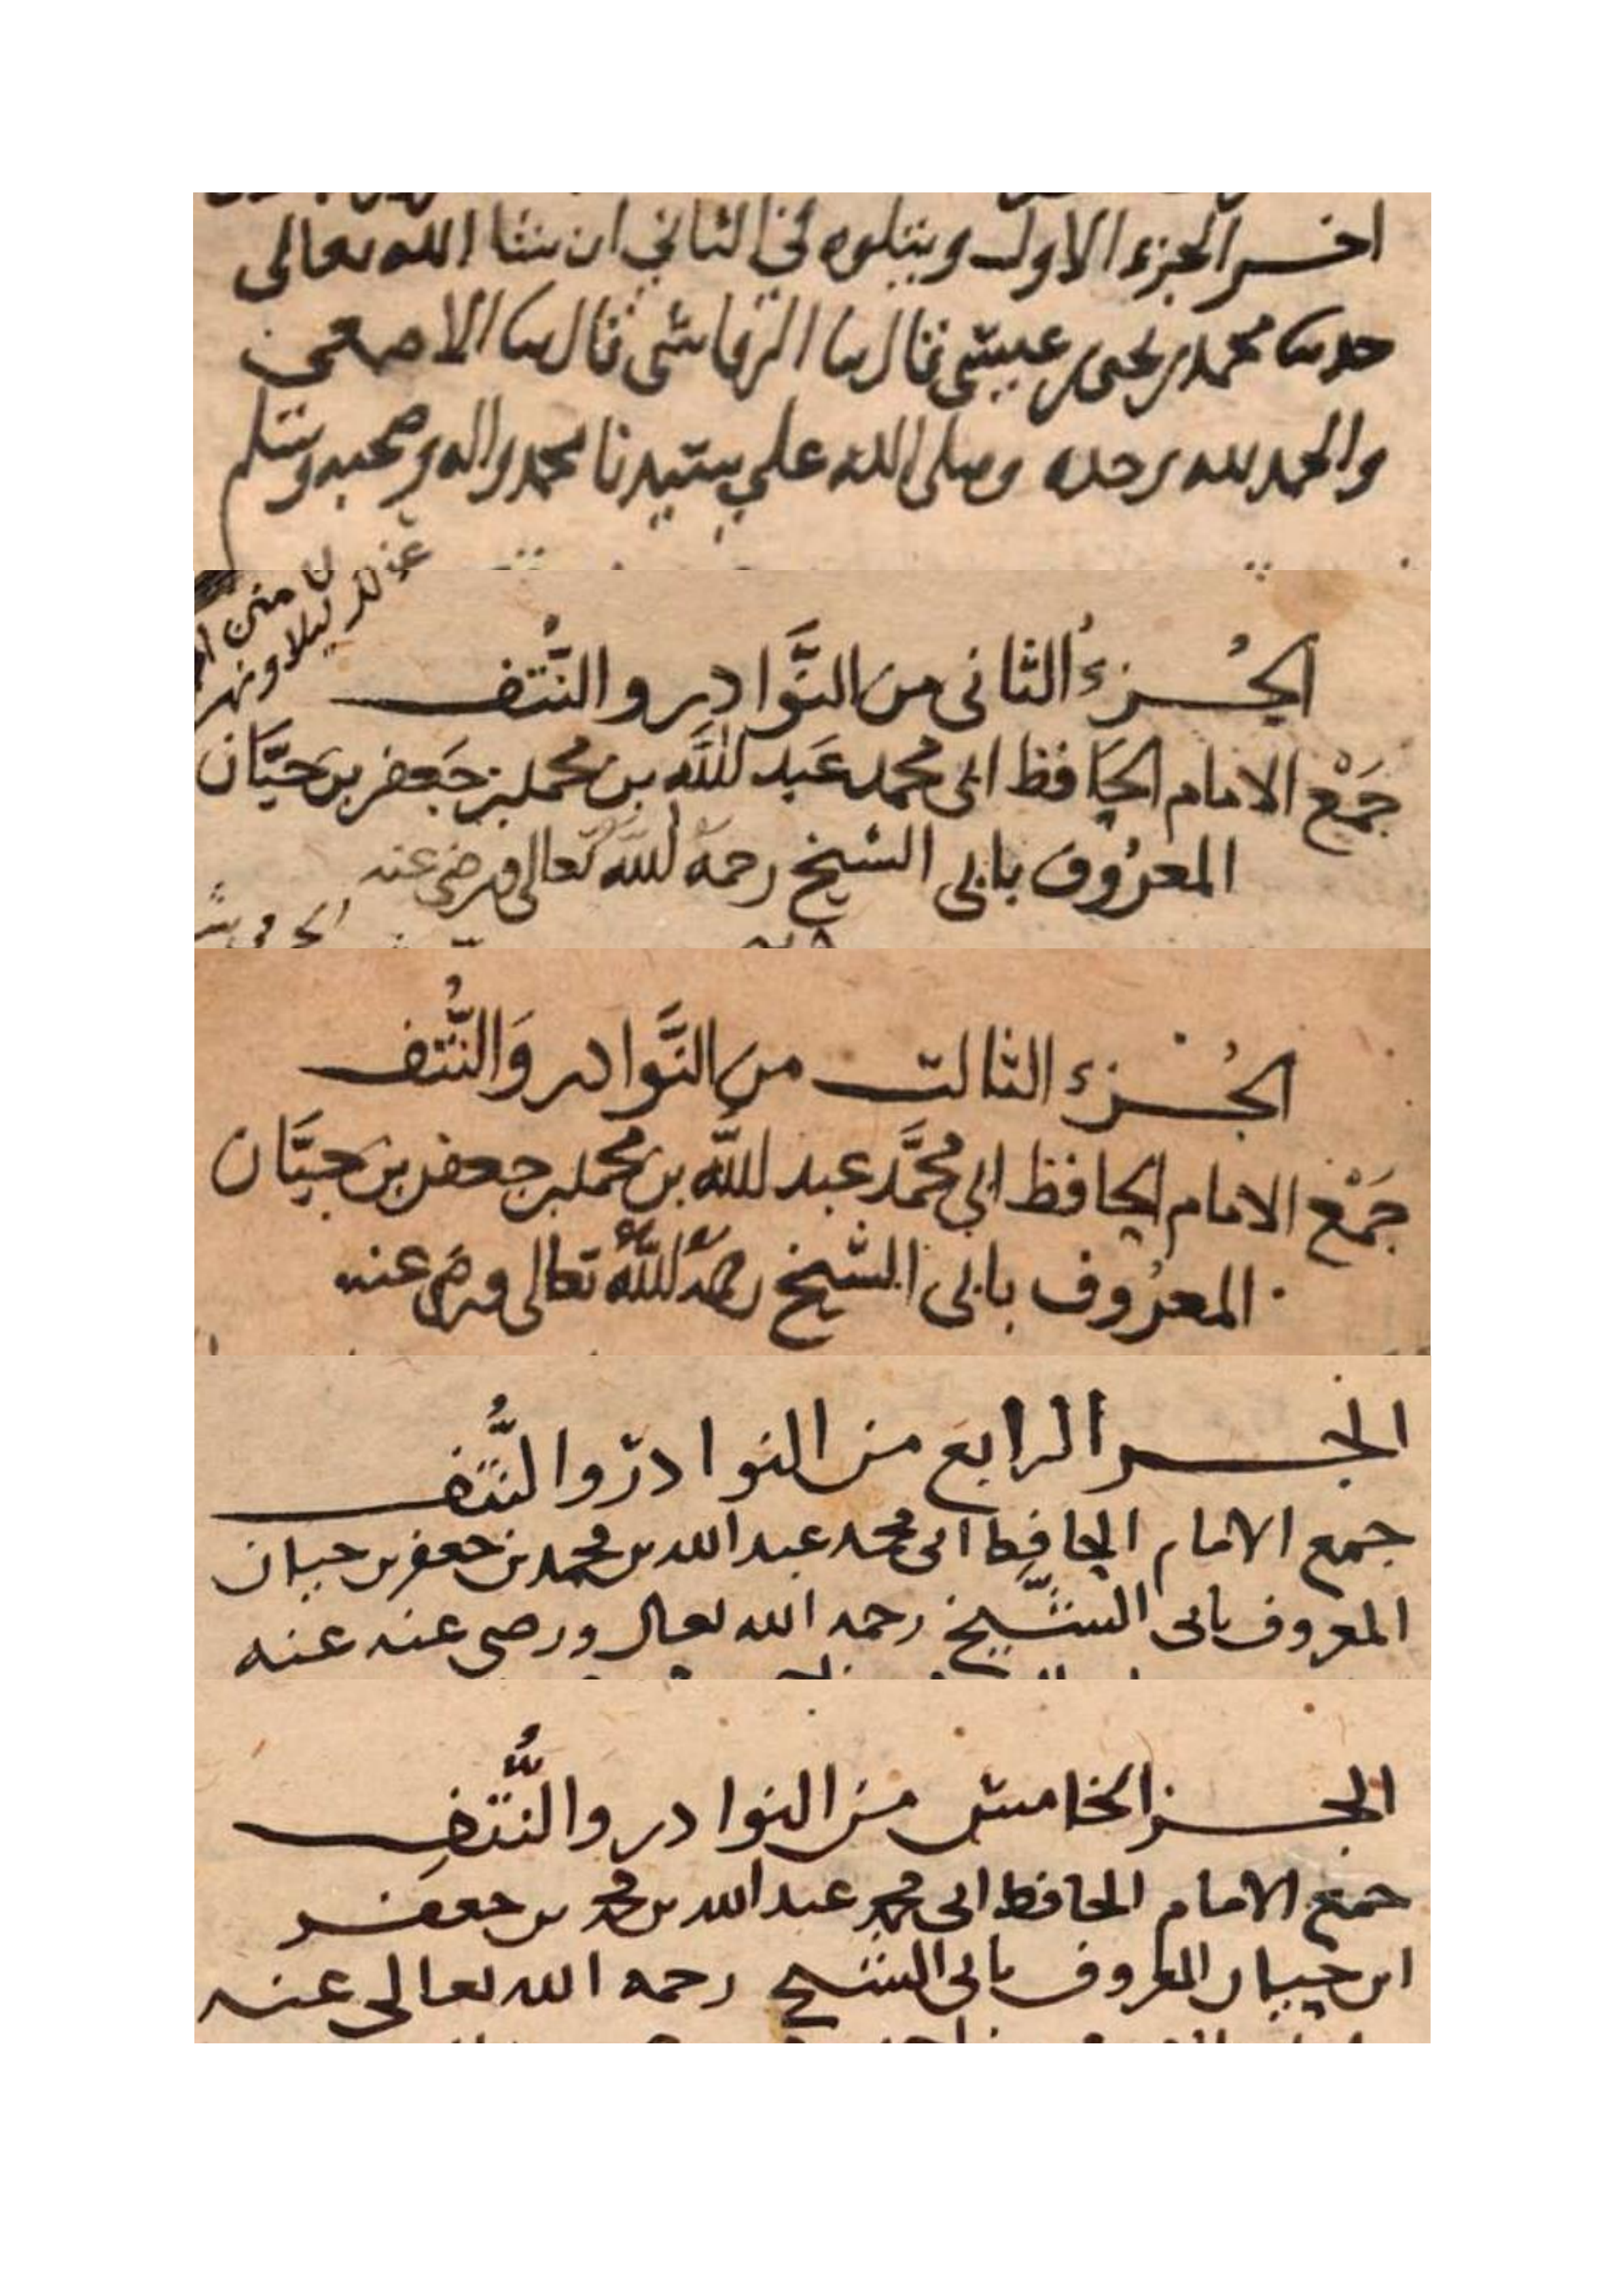 اخر الجزء الاول ويتلوه في الثاني ان شا الله تعالى
حدثنا محمد بن يحيى بن عيسى قال ثنا الرقاشي قال ثنا الاصمعي
والحمد لله وحده وصلى الله على سيدنا محمد واله وصحبه وسلم
الجُزءُ الثانى من النَّوادِر والنُّتف
جَمْع الامام الحَافظ ابى محمد عَبد اللَّه بن محمد بن جَعفر بن حَيَّان
المعرُوف بابى الشيخ رحمه اللَّه تعالى ورضى عنه
الجُزء الثالث من النَّوادر وَالنُّتف
جَمْع الامام الحافظ ابي محمَّد عبد اللَّه بن محمد بن جعفر بن حيَّان
المعرُوف بابى الشَّيخ رحمه اللَّه تعالى ورضى عنه
الجز الرابع من النوادر والنُّتف
جمع الامام الحافظ ابى محمد عبد الله بن محمد بن جعفر بن حيان
المعروف بابى الشَّيخ رحمه الله تعال ورضى عنه عنه
الجز الخامس من النوادر والنُّتفِ
جمع الامام الحافظ ابى محمد عبد الله بن محمد بن جعفر
ابن حيان المعروف بابى الشيخ رحمه الله تعالى عنه